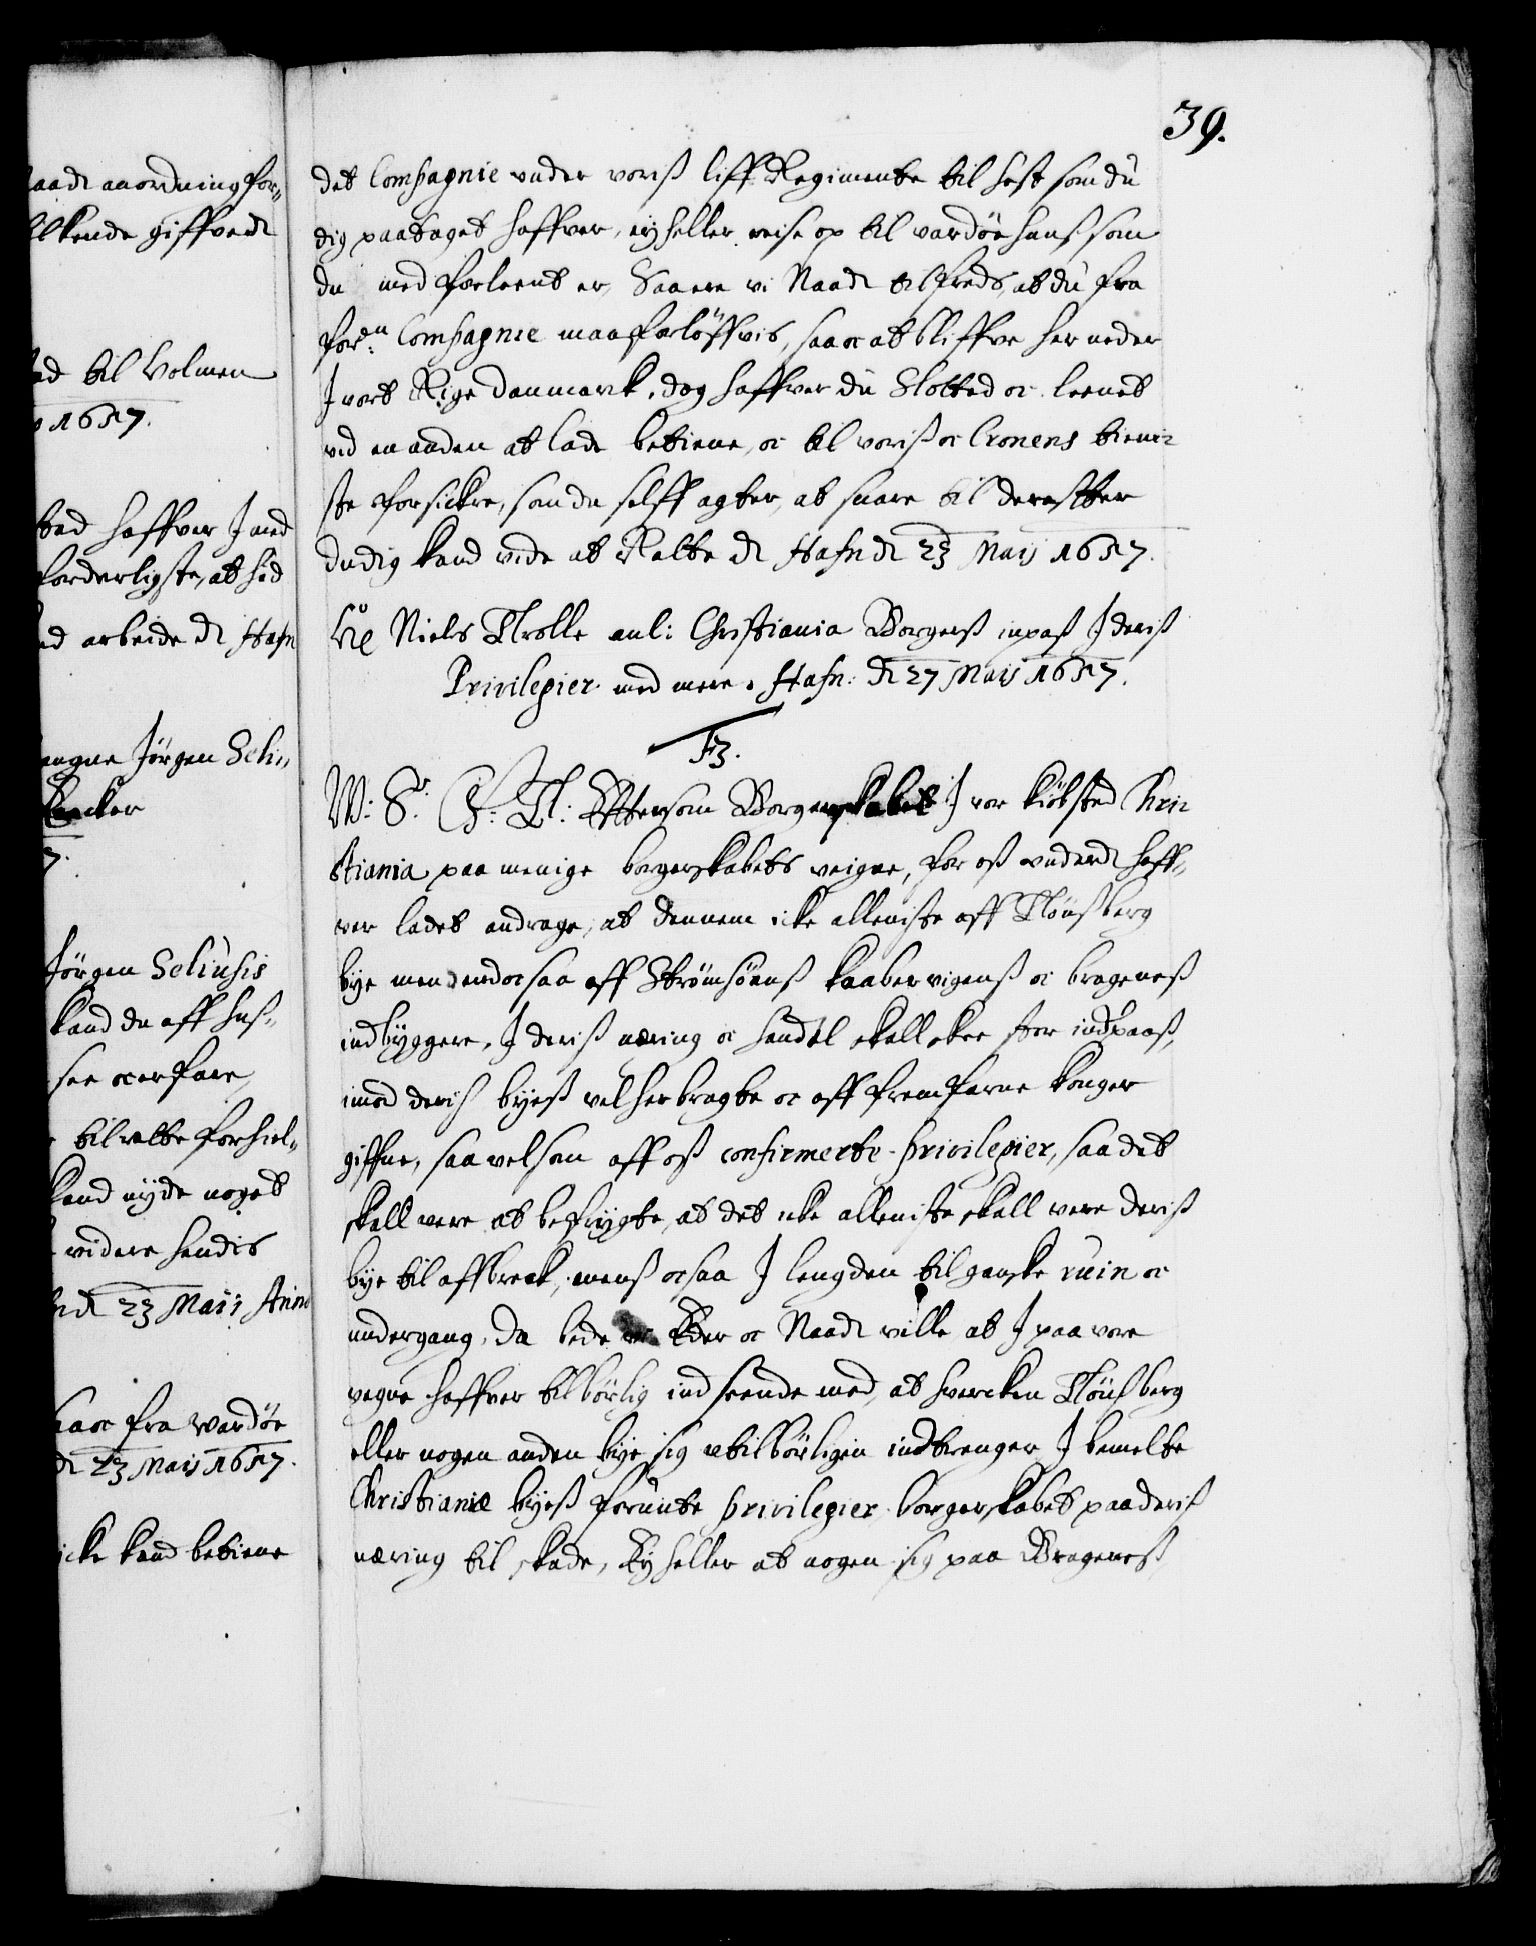 39.
aade anordning for=
lkende giffvedt
ed til Volmen
1657.
ted haffver I med
forderligste, at hid
ed arbeide dt Hafn
engne Jørgen Seli=
becker
7.
Jørgen Seliusis
kand du aff huß=
see oc erfare,
til rette forhiel=
kand nyde noget
videre hendis
dt 23 Maij Anno
saa oc fra Wardøe
dt 23 Maij 1657.
icke kand betiene
det Compagnie under voriß liff Regimente til hest som du
dig paataget haffver, ey heller reise op til Vardøehuuß som
du med forleent er, Saa ere vi Naadt tilfreds, at du fra
fordn: Compagnie maa forløffvis, saa oc at bliffve her neder
I vort Rige Danmarck, dog haffver du Slotted oc leenet
ved en anden at lade betiene, oc til voriß oc Cronens tieni=
ste forsickre, som du selff agter, at suare til derefter
du dig kand vide at Rette dt Hafn dt 23 Maij 1657.
Niels Trolle anl: Christiania Borgerß inpaß I deriß
Privilegier med mere. Hafn: dt 27 Maij 1657.
F3.
W: S: G: T: Efftersom Borgerskabet I vor kiøbsted Chri=
stiania paa menige borgerskabets veigne, for oß underdt haff=
ver ladet andrage, at dennem icke alleniste aff Tønßberg
bye men end oc saa aff Strømsøens Kaabervigenß oc brageneß
indbyggere, I deriß næring oc handel skall skee stor indpaaß,
imod deriß byeß velherbragte oc aff fremfarne konger
giffne, saa velsom aff oß confirmerte privilegier, saa det
skall vere at befrygte, at det icke alleniste skall vere deriß
bye til affbreck, menß oc saa I lengden til ganske ruin oc
undergang, Da bede vi Eder oc Naadt ville at I paa vore
vegne haffver tilbørlig ind seende med, at hvercken Tønßberg
eller nogen anden bye sig utilbørligen indtrenger I bemelte
Christianiæ byeß forunte privilegier borgerskabet paa deriß
næring til skade, Ey heller at nogen sig paa Brageneß